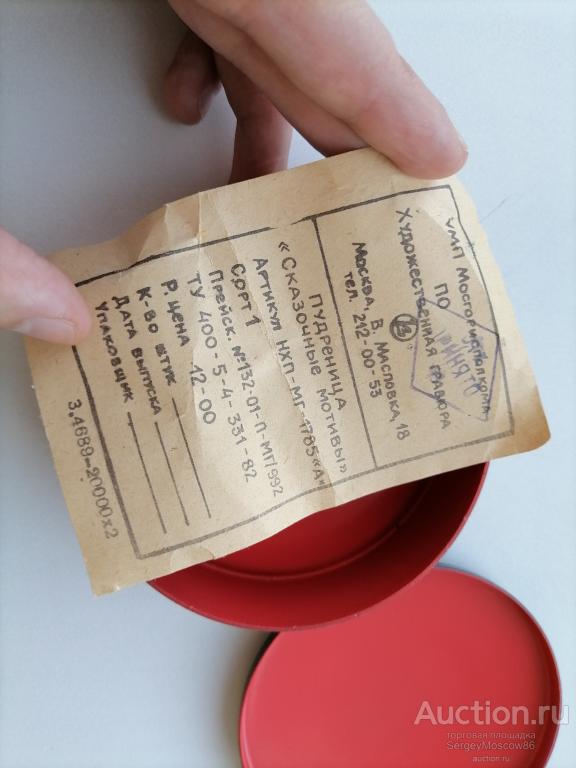 УМП Мосгорисполкома
ПО
Художественная гравюра
Москва, В. Масловка, 18
тел. 212-00-53
ПУДРЕНИЦА
«Сказочные мотивы»
Артикул НХП-МГ-1785«А»
Сорт 1
Прейск. №132-01-П-МГ/992
ТУ 400-5-4-331-82
Р. цена 12-00
К-во штук
Дата выпуска
Упаковщик
3.4689-20000х2
Auction.ru
торговая площадка
SergeyMoscow86
auction.ru